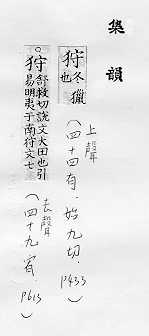 集韻
狩 冬獵
也
上聲
(四十四有．始九切．P433)
。狩 舒救切說文犬田也引
易明夷于南狩文七
去聲
(四十九宥．P613)